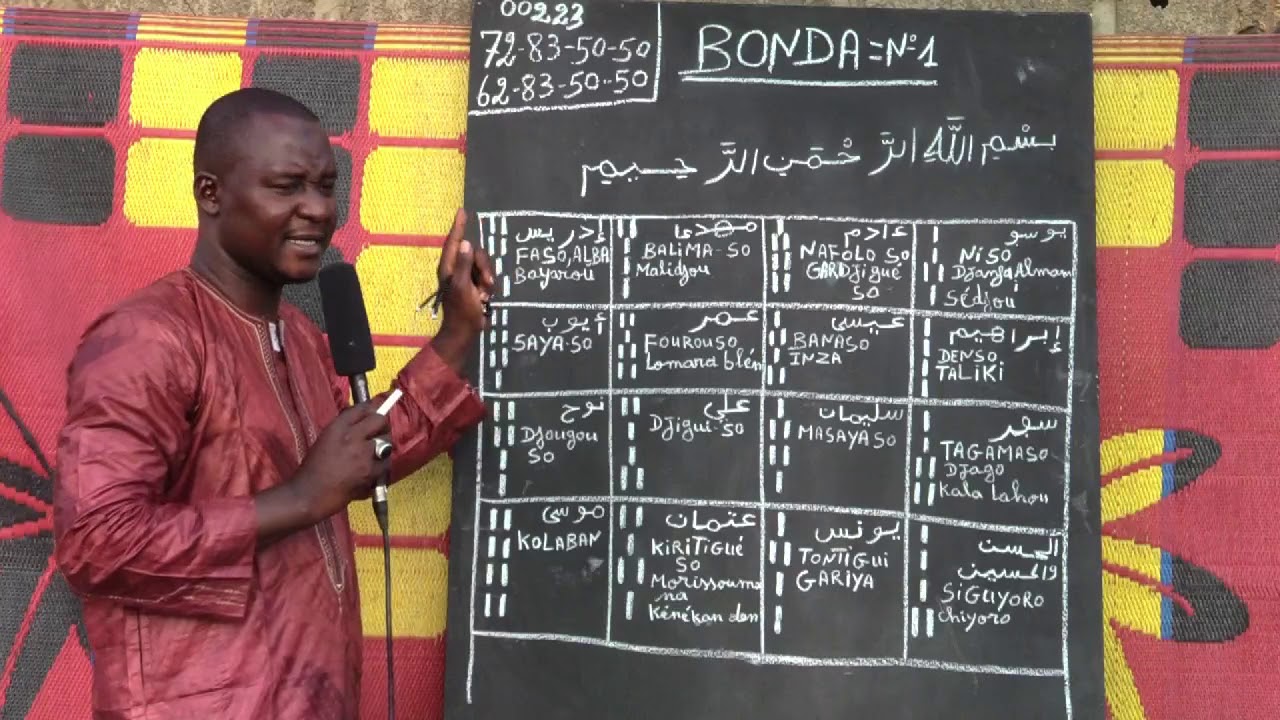 00223
72-83-50-50
62-83-50-50
BONDA=N°1
بِسْمِ اللَّهِ الرَّحْمَنِ الرَّحِيمِ
إدريس
FASO, ALBA
Bayorou
مهدى
BALIMA-SO
Malidjou
ءادم
NAFOLO SO
GARIDjigué
SO
يوسو
NiSO
Djanfa, Alman
Sédjou
أيوب
SAYA-SO
عمر
FOUROUSO
Lomara blén
عيسى
BANASO
INZA
إبراهيم
DENSO
TALIKI
نوح
Djougou
SO
علي
Djigui-SO
سليمان
MASAYASO
TAGAMASO
Djago
Kala Lahou
موسى
KOLABAN
عتمان
KIRITIGUÉ
SO
Morissouma
na
Kénékan den
يونس
TONTIGUI
GARIYA
الحسن
والحسين
SIGUYORO
chiyoro